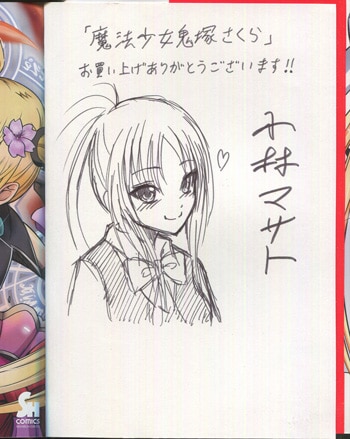 「魔法少女鬼塚さくら」
お買い上げありがとうございます!!
木林マサト
SH
COMICS